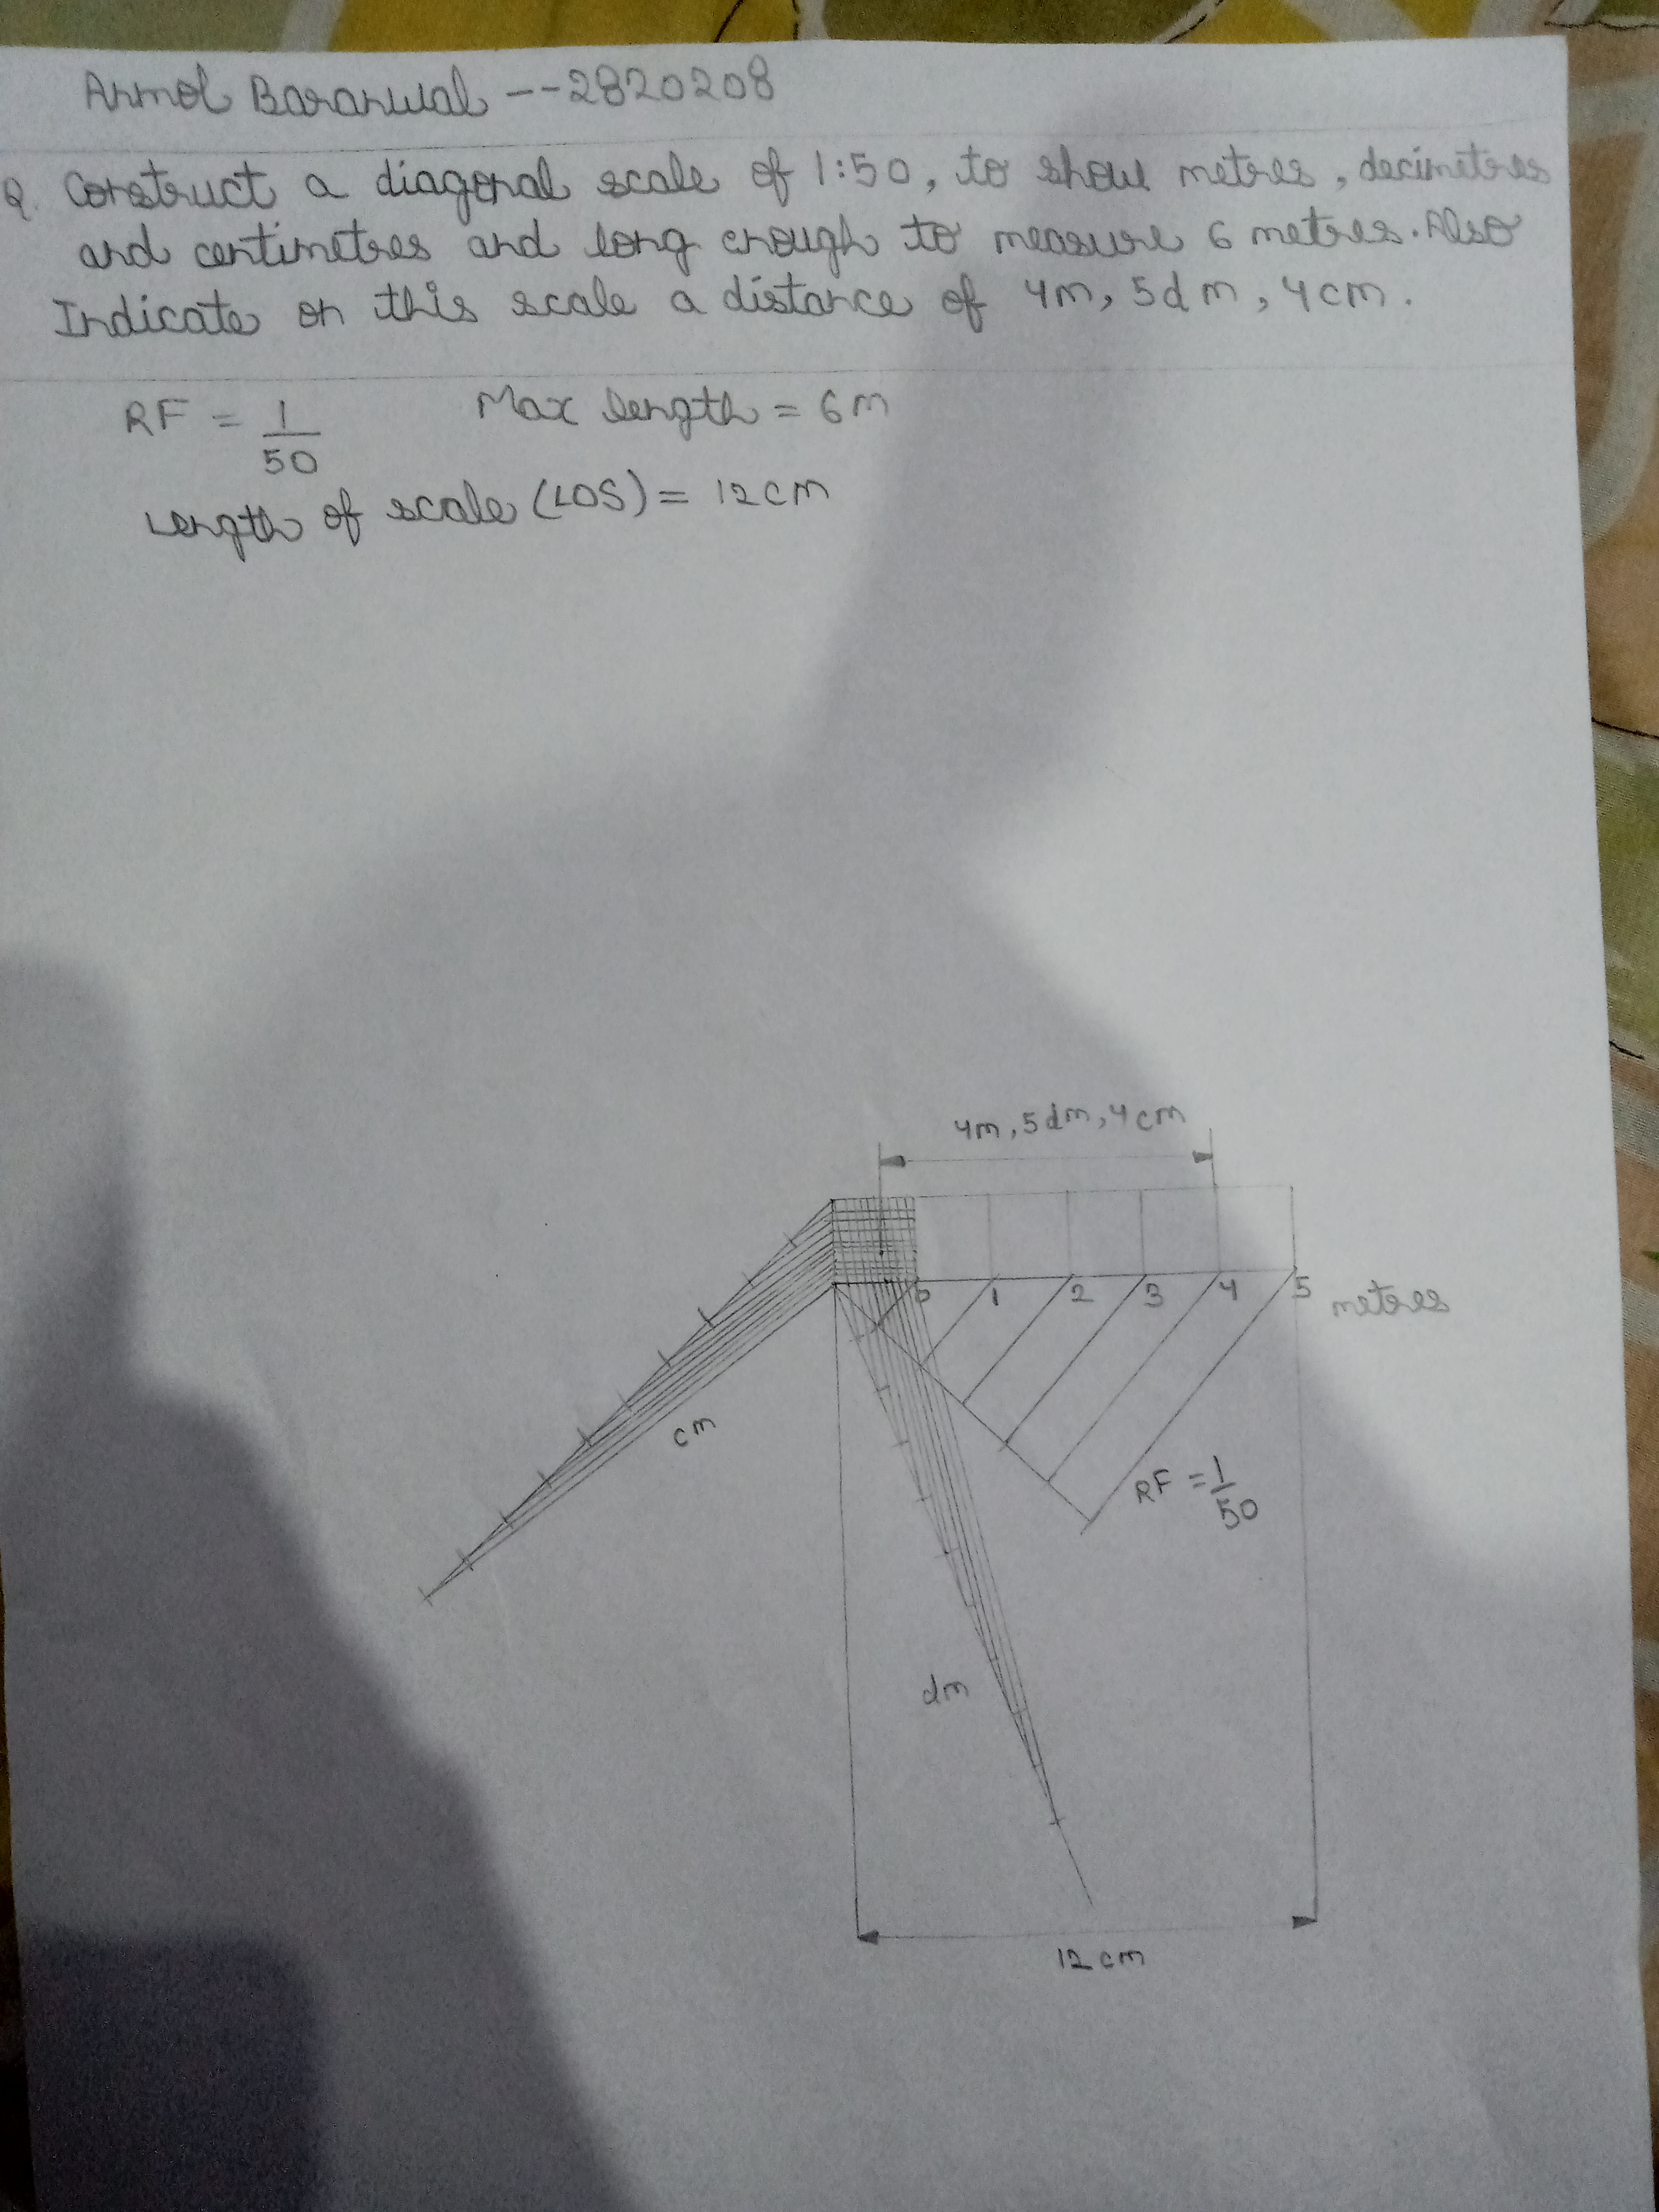 Anmol Baranwal --2820208
Q. Construct a diagonal scale of 1:50, to show metres, decimetres
and centimetres and long enough to measure 6 metres. Also
Indicate on this scale a distance of 4m, 5dm, 4cm.
RF = 1/50 Max length = 6m
Length of scale (LOS) = 12cm
4m, 5dm, 4cm
0 1 2 3 4 5 metres
cm
RF = 1/50
dm
12 cm